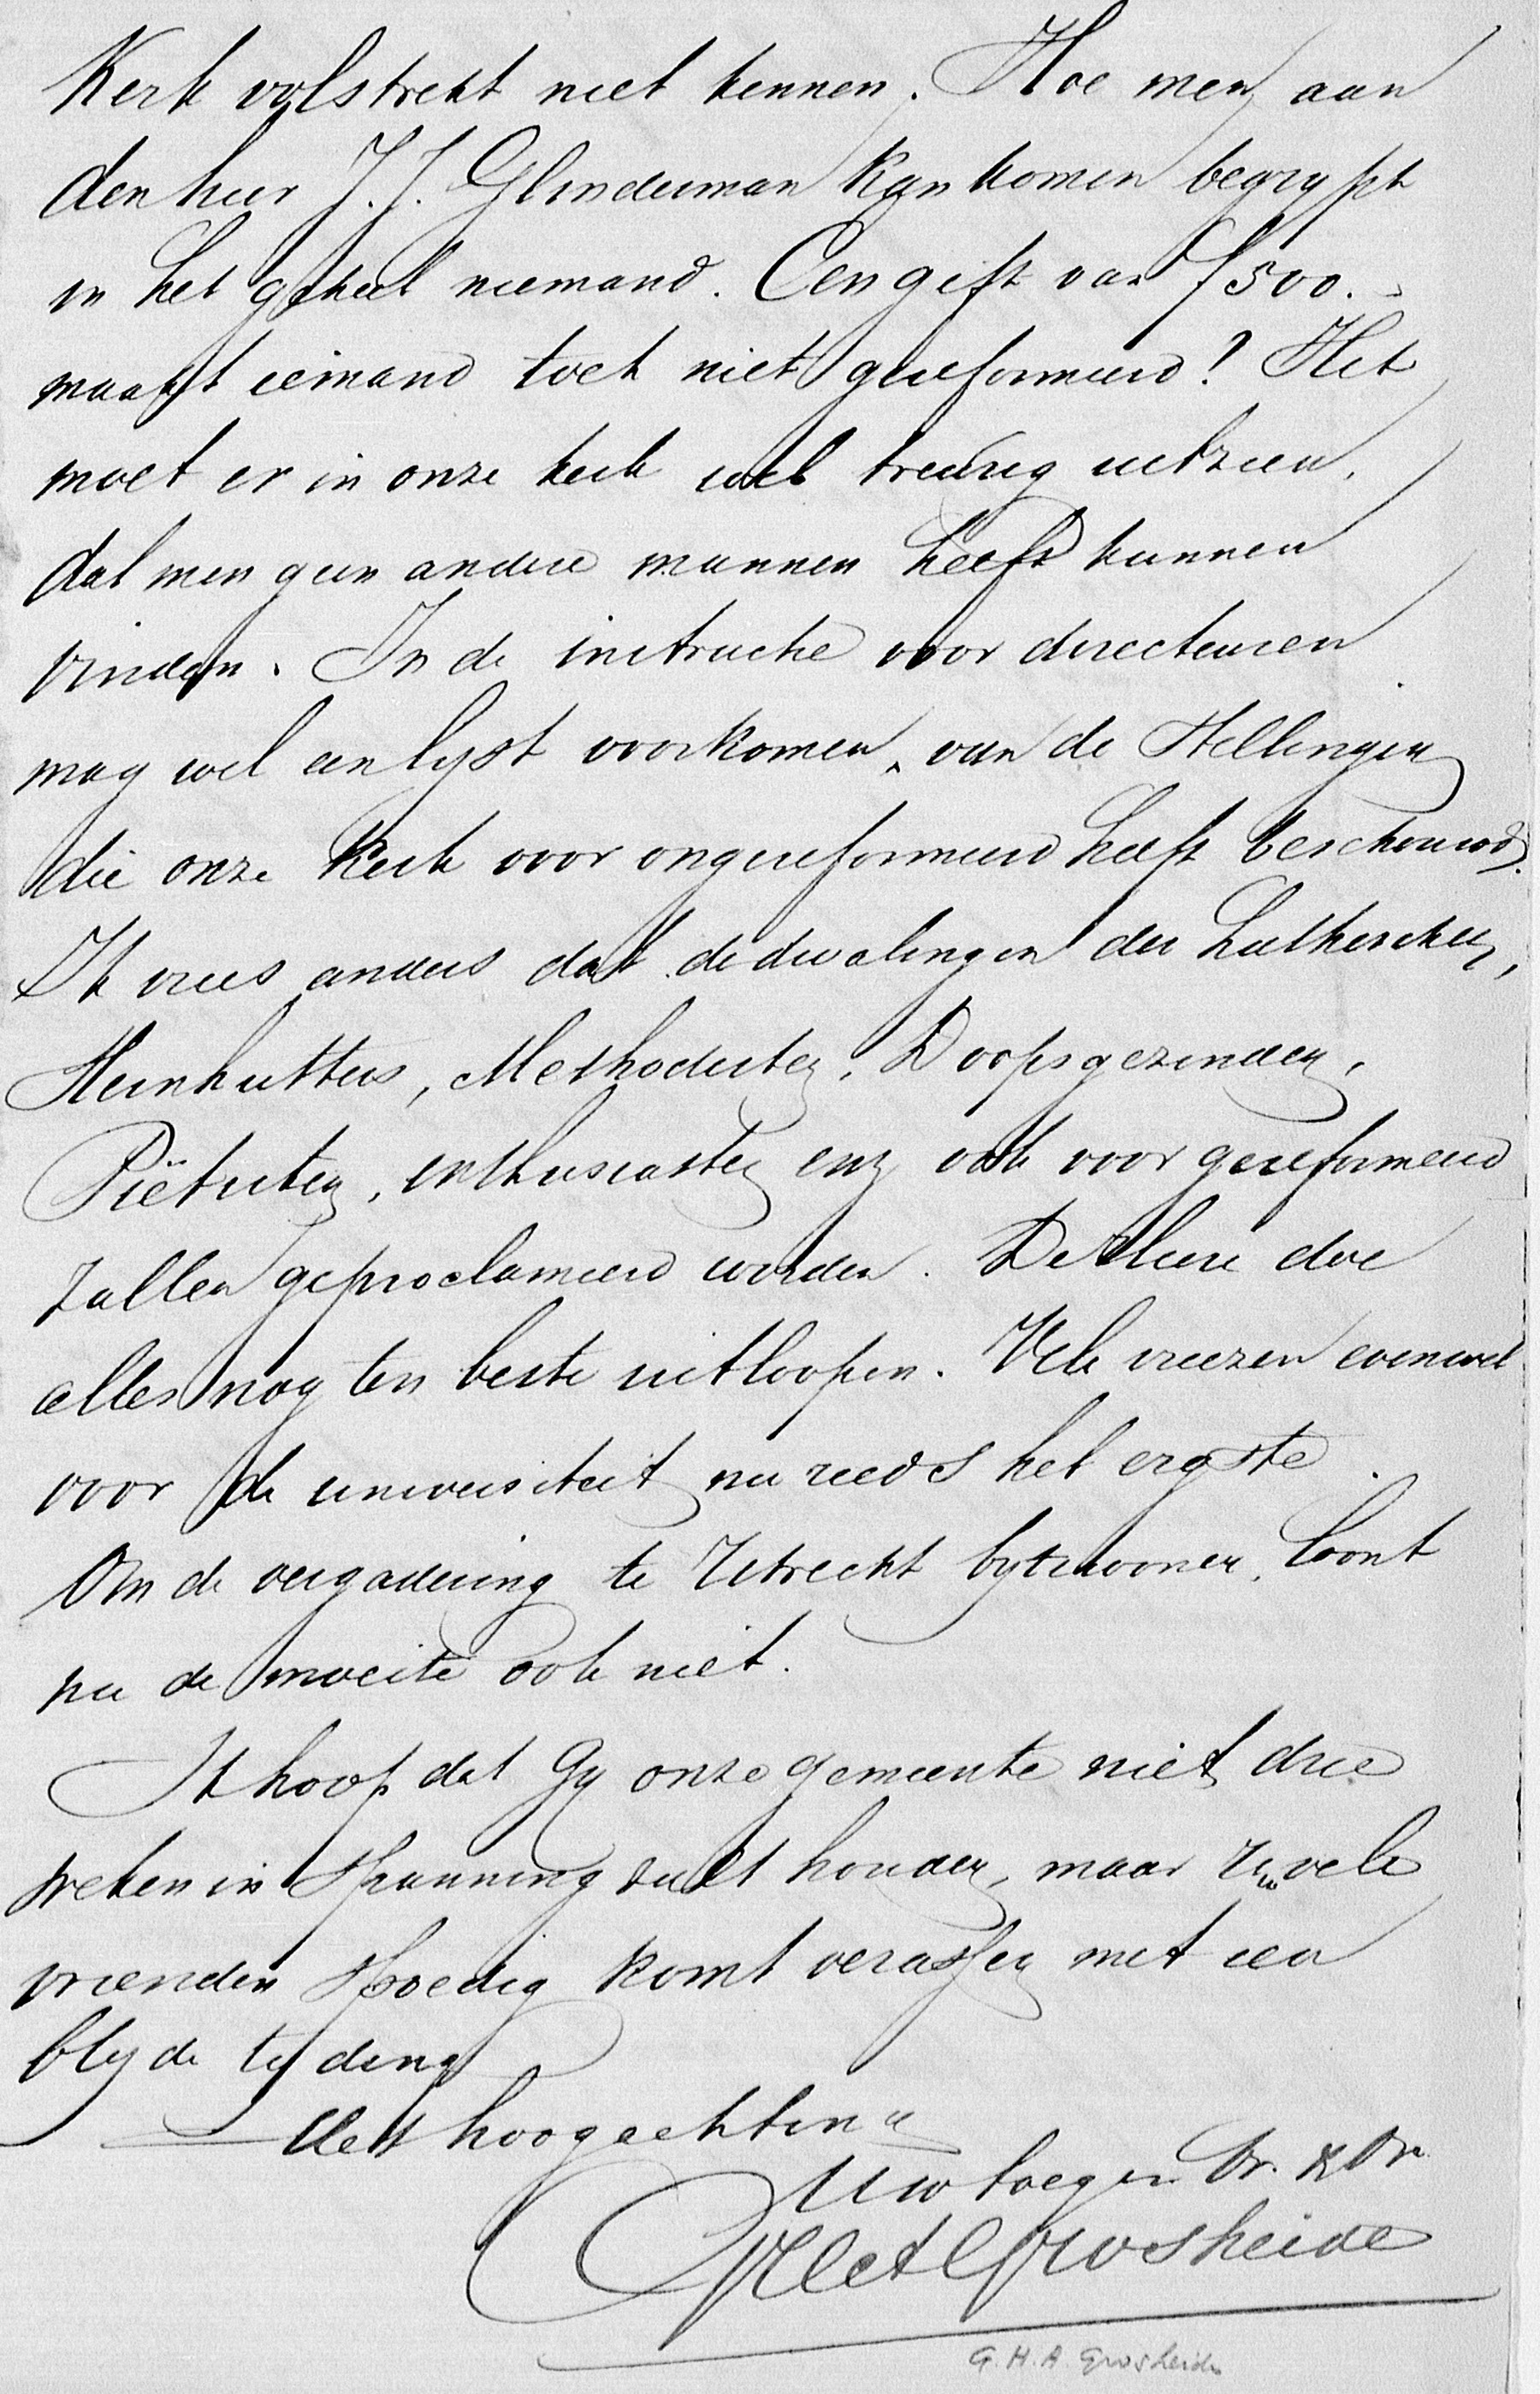 Kerk volstrekt niet kennen. Hoe men aan
den heer J. J. Glinderman kan komen begrypt
in het geheel niemand. Een gift van f 500.-
maakt iemand toch niet gereformeerd! Het
moet er in onze kerk wel treurig uitzien,
dat men geen andere mannen heeft kunnen
vinden. In de instructie voor directeuren
mag wel een lyst voorkomen, van de Stellingen
die onze Kerk voor ongereformeerd heeft beschouwd.
Ik vrees anders dat de dwalingen der Lutherschen,
Hernhutters, Methodisten, Doopsgezinden,
Piëtisten, enthusiasten enz ook voor gereformeerd
zullen geproclameerd worden. De Heere doe
alles nog ten beste uitloopen. Vele vreezen evenwel
voor de universiteit nu reeds het ergste.
Om de vergadering te Utrecht bytewonen, loont
nu de moeite ook niet.
Ik hoop dat Gy onze gemeente niet drie
weken in Spanning zult houden, maar Uw vele
vrienden Spoedig komt verassen met een
blyde tyding
Met hoogachting
Uw toegen. Br. & Vr
Grosheide
G. H. A. Grosheide